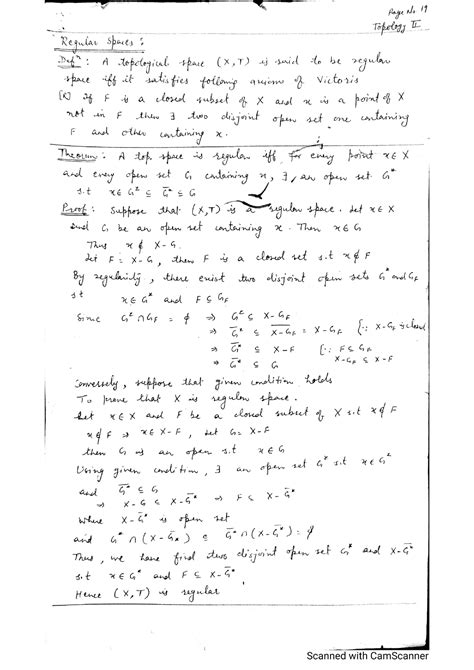 Page No 19
Topology II
Regular Spaces :
Defⁿ : A topological space (X,T) is said to be regular
space iff it satisfies following axiom of Victoris
[R] If F is a closed subset of X and x is a point of X
not in F then ∃ two disjoint open set one containing
F and other containing x.
Theorem : A top. space is regular iff for every point x∈X
and every open set G containing x, ∃ an open set G*
s.t x∈ G* ⊆ G̅* ⊆ G
Proof : Suppose that (X,T) is a regular space. Let x∈X
and G be an open set containing x. Then x∈G
Thus x∉ X-G.
Let F = X-G, then F is a closed set s.t x∉F
By regularity, there exist two disjoint open sets G* and G_F
s.t x∈G* and F⊆G_F
Since G*∩G_F = ϕ ⇒ G* ⊆ X-G_F
⇒ G̅* ⊆ X̅-̅G̅_F = X-G_F [∵ X-G_F is closed
⇒ G̅* ⊆ X-F [∵ F⊆G_F
⇒ G̅* ⊆ G X-G_F ⊆ X-F
Conversely, suppose that given condition holds
To prove that X is regular space.
Let x∈X and F be a closed subset of X s.t x∉F
x∉F ⇒ x∈X-F, Let G = X-F
then G is an open s.t x∈G
Using given condition, ∃ an open set G* s.t x∈G*
and G̅* ⊆ G
⇒ X-G ⊆ X-G̅* ⇒ F ⊆ X-G̅*
where X-G̅* is open set
and G* ∩ (X-G̅*) ⊆ G̅* ∩ (X-G̅*) = ϕ
Thus, we have find two disjoint open set G* and X-G̅*
s.t x∈G* and F ⊆ X-G̅*,
Hence (X,T) is regular
Scanned with CamScanner